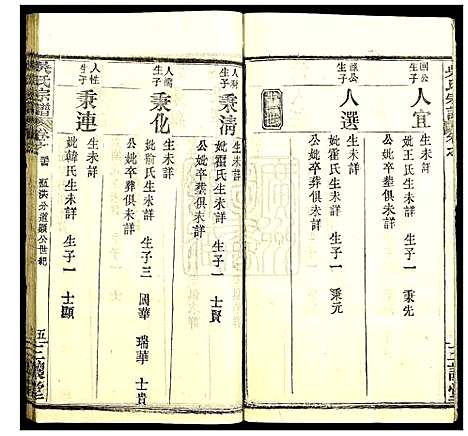 吳氏宗譜
回公
生子
人宜
生未詳
妣王氏生未詳 生子一 秉先
公妣卒葬俱未詳
公
生子
人選
生未詳
妣霍氏生未詳 生子一 秉元
公妣卒葬俱未詳
三讓堂
人
生子
秉清
生未詳
妣霍氏生未詳 生子一 士賢
公妣卒葬俱未詳
人
生子
秉化
生未詳
妣俞氏生未詳 生子三 國華 瑞華 士貴
公妣卒葬俱未詳
人性
生子
秉連
生未詳
妣韓氏生未詳 生子一 士顯
公妣卒葬俱未詳
吳氏宗譜
分道顯公世紀
五
三讓堂